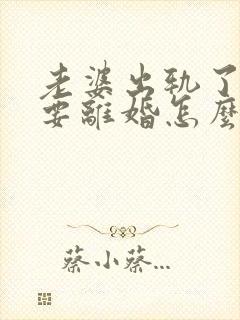 老婆出轨了
要離婚怎麼
蔡小蔡...